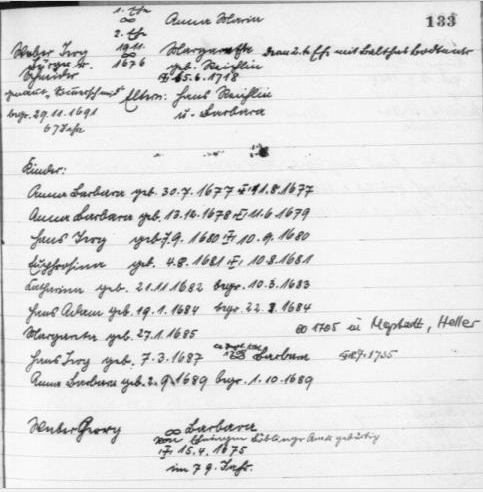 1. Ehe
∞ Anna Maria 133
2. Ehe
Weber Jerg 19.11. Margaretha
∞
Bürger u. 1676 geb. Reichlin
Schneider 15.6.1718
genannt Eltern: Hans Reichlin
begr. 29.11.1691 u. Barbara
67 Jahr
Kinder:
Anna Barbara geb. 30.7.1677 1.8.1677
Anna Barbara geb. 13.12.1678 11.6.1679
Hans Jerg geb. 7.9.1680 10.9.1680
Euphrosina geb. 4.8.1681 10.8.1681
Catharina geb. 21.11.1682 begr. 10.3.1683
Hans Adam geb. 19.1.1684 begr. 22. 1684
Margareta geb. 27.1.1685 ∞ 1705 in Mepstadt, Heller
Hans Jerg geb. 7.3.1687 Barbara 1735
Anna Barbara geb. 2.9.1689 begr. 1.10.1689
Weber Georg ∞ Barbara
von gebürtig
15.4.1675
im 79. Jahr.